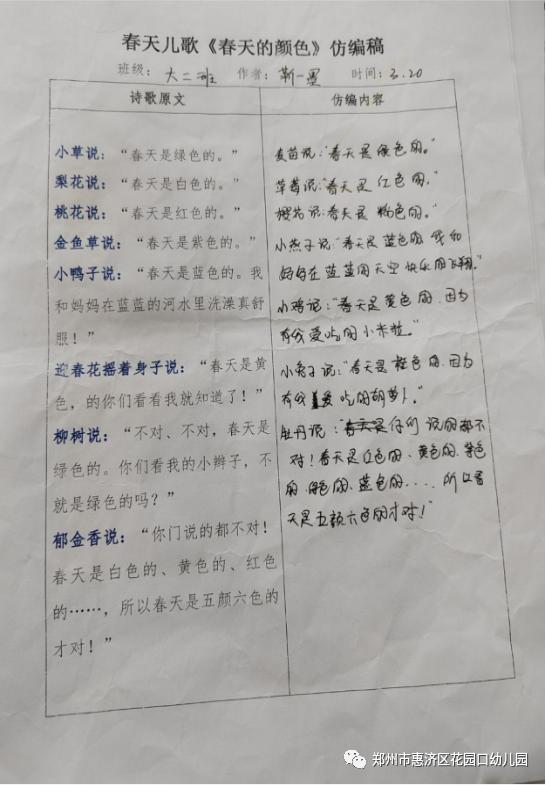 春天儿歌《春天的颜色》仿编稿
班级：大二班 作者：靳一墨 时间：3.20
诗歌原文
小草说：“春天是绿色的。”
梨花说：“春天是白色的。”
桃花说：“春天是红色的。”
金鱼草说：“春天是紫色的。”
小鸭子说：“春天是蓝色的。我
和妈妈在蓝蓝的河水里洗澡真舒
服！”
迎春花摇着身子说：“春天是黄
色，的你们看看我就知道了！”
柳树说：“不对、不对，春天是
绿色的。你们看我的小辫子，不
就是绿色的吗？”
郁金香说：“你门说的都不对！
春天是白色的、黄色的、红色
的……，所以春天是五颜六色的
才对！”
仿编内容
麦苗说：“春天是绿色的。”
草莓说：“春天是红色的。”
樱花说：春天是粉色的。”
小燕子说：“春天是蓝色的 我和
妈妈在蓝蓝的天空快乐的飞翔。”
小鸡说：“春天是黄色的，因为
有我爱吃的小米粒。”
小兔子说：“春天是橙色的，因为
有我爱吃的胡萝卜。”
牡丹说：“你们说的都不
对！春天是红色的、黄色的、紫色
的、绿色的、蓝色的.... 所以春
天是五颜六色的才对！”
郑州市惠济区花园口幼儿园